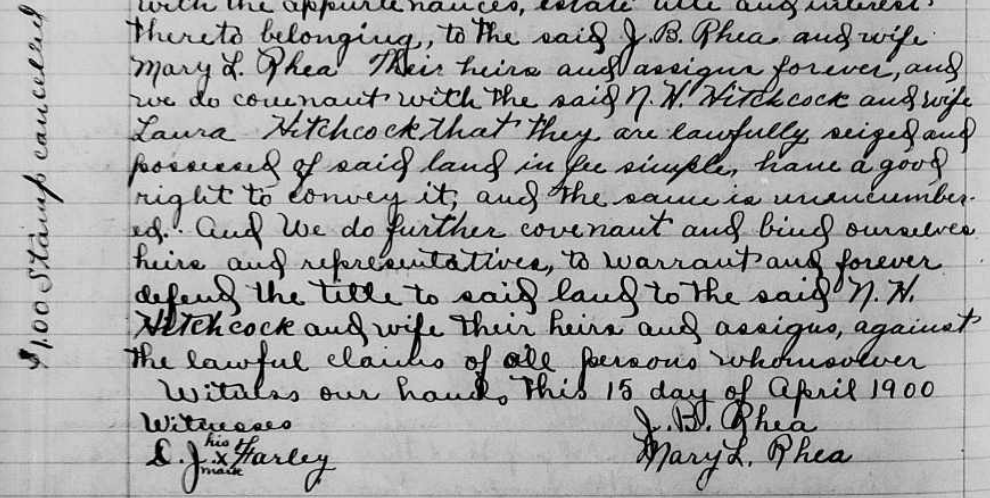 with the appurtenances, estate title and interest
thereto belonging, to the said J. B. Rhea and wife
Mary L. Rhea Their heirs and assigns forever, and
we do covenant with the said N. H. Hitchcock and wife
Laura Hitchcock that they are lawfully seized and
possessed of said land in fee simple, have a good
right to convey it, and the same is unencumber-
ed. And We do further covenant and bind ourselves
heirs and representatives, to warrant and forever
defend the title to said land to the said N. H.
Hitchcock and wife Their heirs and assigns, against
the lawful claims of all persons whomsoever
Witness our hands This 15 day of April 1900
Witnesses
J. B. Rhea
D. J. his x mark Farley
Mary L. Rhea
$1.00 Stamp cancelled